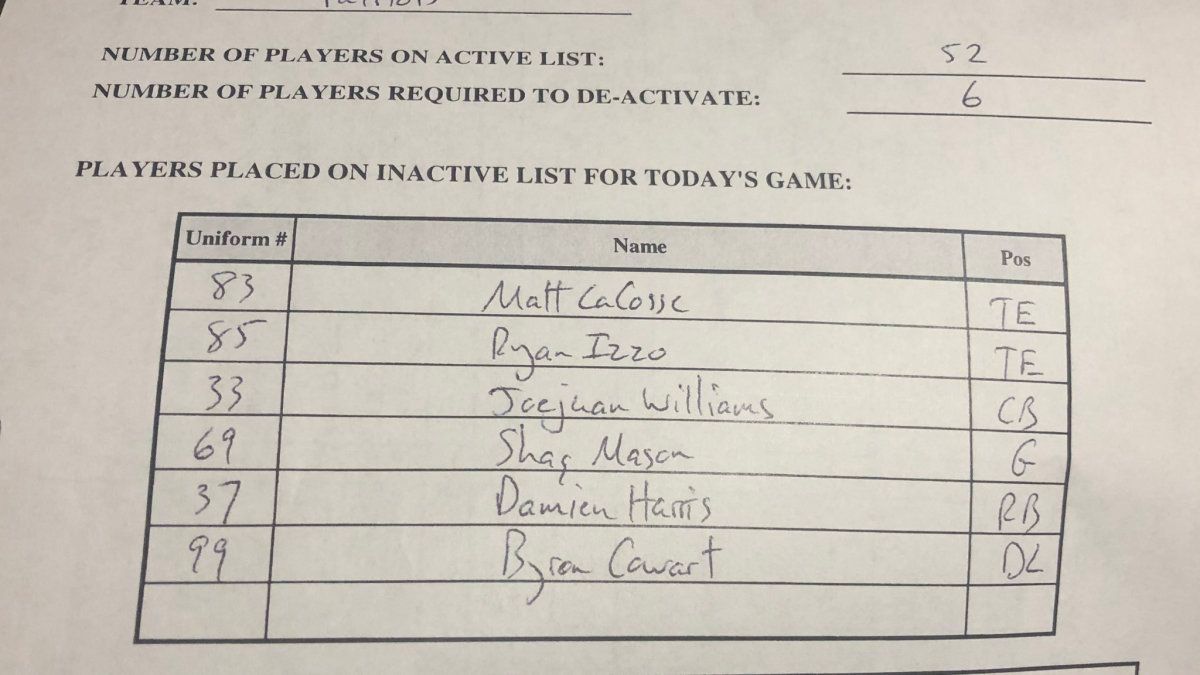 TEAM: Patriots
NUMBER OF PLAYERS ON ACTIVE LIST: 52
NUMBER OF PLAYERS REQUIRED TO DE-ACTIVATE: 6
PLAYERS PLACED ON INACTIVE LIST FOR TODAY'S GAME:
Uniform # Name Pos
83 Matt LaCosse TE
85 Ryan Izzo TE
33 Joejuan Williams CB
69 Shaq Mason G
37 Damien Harris RB
99 Byron Cowart DL